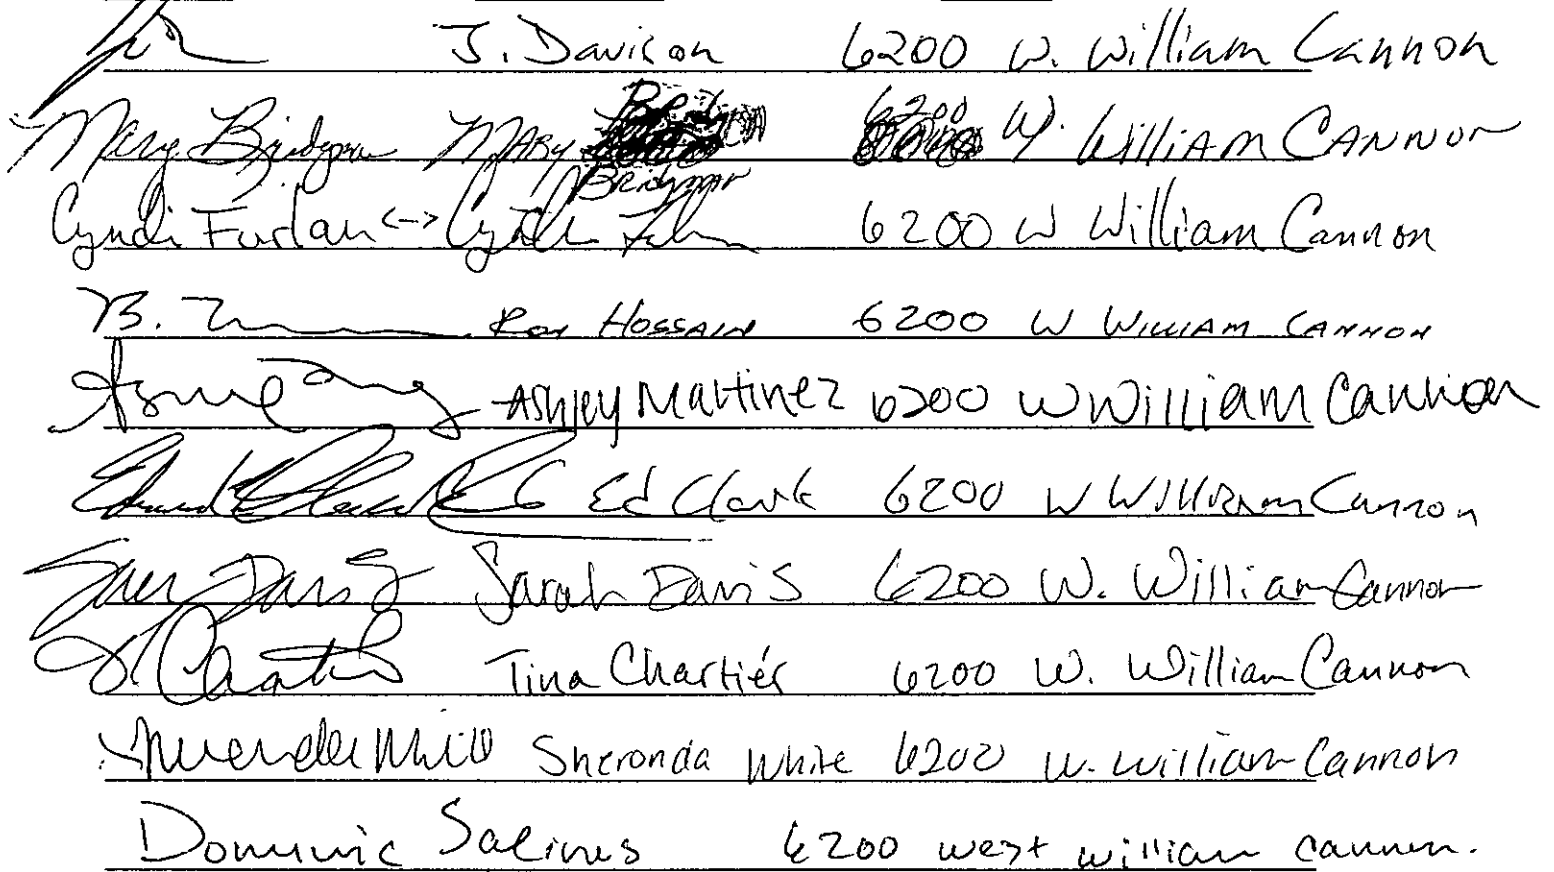 J. Davison 6200 W. William Cannon
Mary Bridgman MARY Bridgman 6200 W. William CANNON
Cyndi Furlan <-> 6200 W William Cannon
B. Roy HOSSAIN 6200 W WILLIAM CANNON
Ashley Martinez 6200 W William Cannon
Ed Clark 6200 W William Cannon
Sarah Davis 6200 W. William Cannon
Tina Chartiér 6200 W. William Cannon
Sheronda White 6200 W. William Cannon
Dominic Salinas 6200 west william cannon.